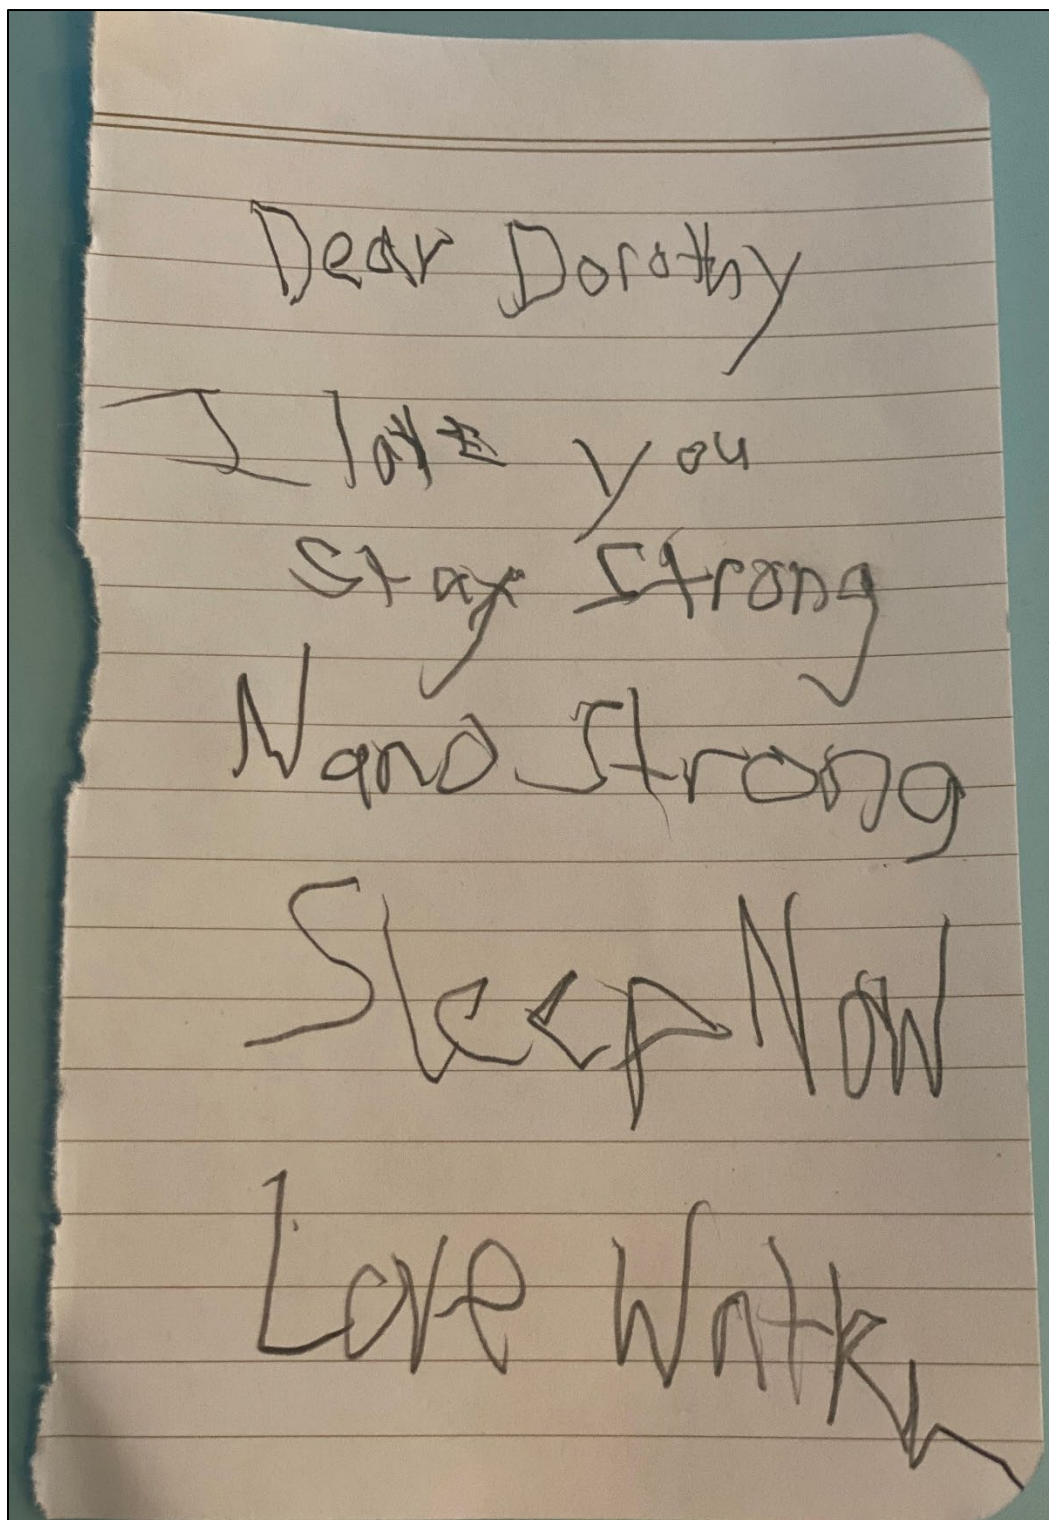 Dear Dorothy
I love you
Stay Strong
Nano Strong
Sleep Now
Love